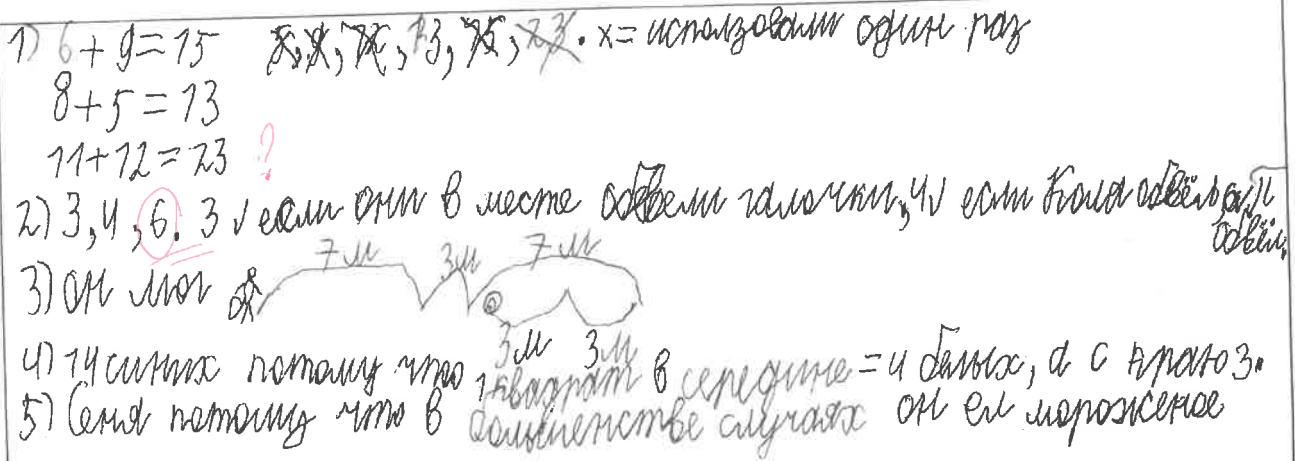 1) 6+9=15 х, х, 13, 15, 23. х= использовали один раз
8+5=13
11+12=23 ?
2) 3,4,6. 3 √ если они в месте обвели галочки, 4√ если Коля обвёл,
обвёл.
3) он мог 7м 3м 7м
3м 3м
4) 14 синих потому что 1 квадрат в середине = 4 белых, а с краю 3.
5) Сеня потому что в большенстве случаях он ел мороженое